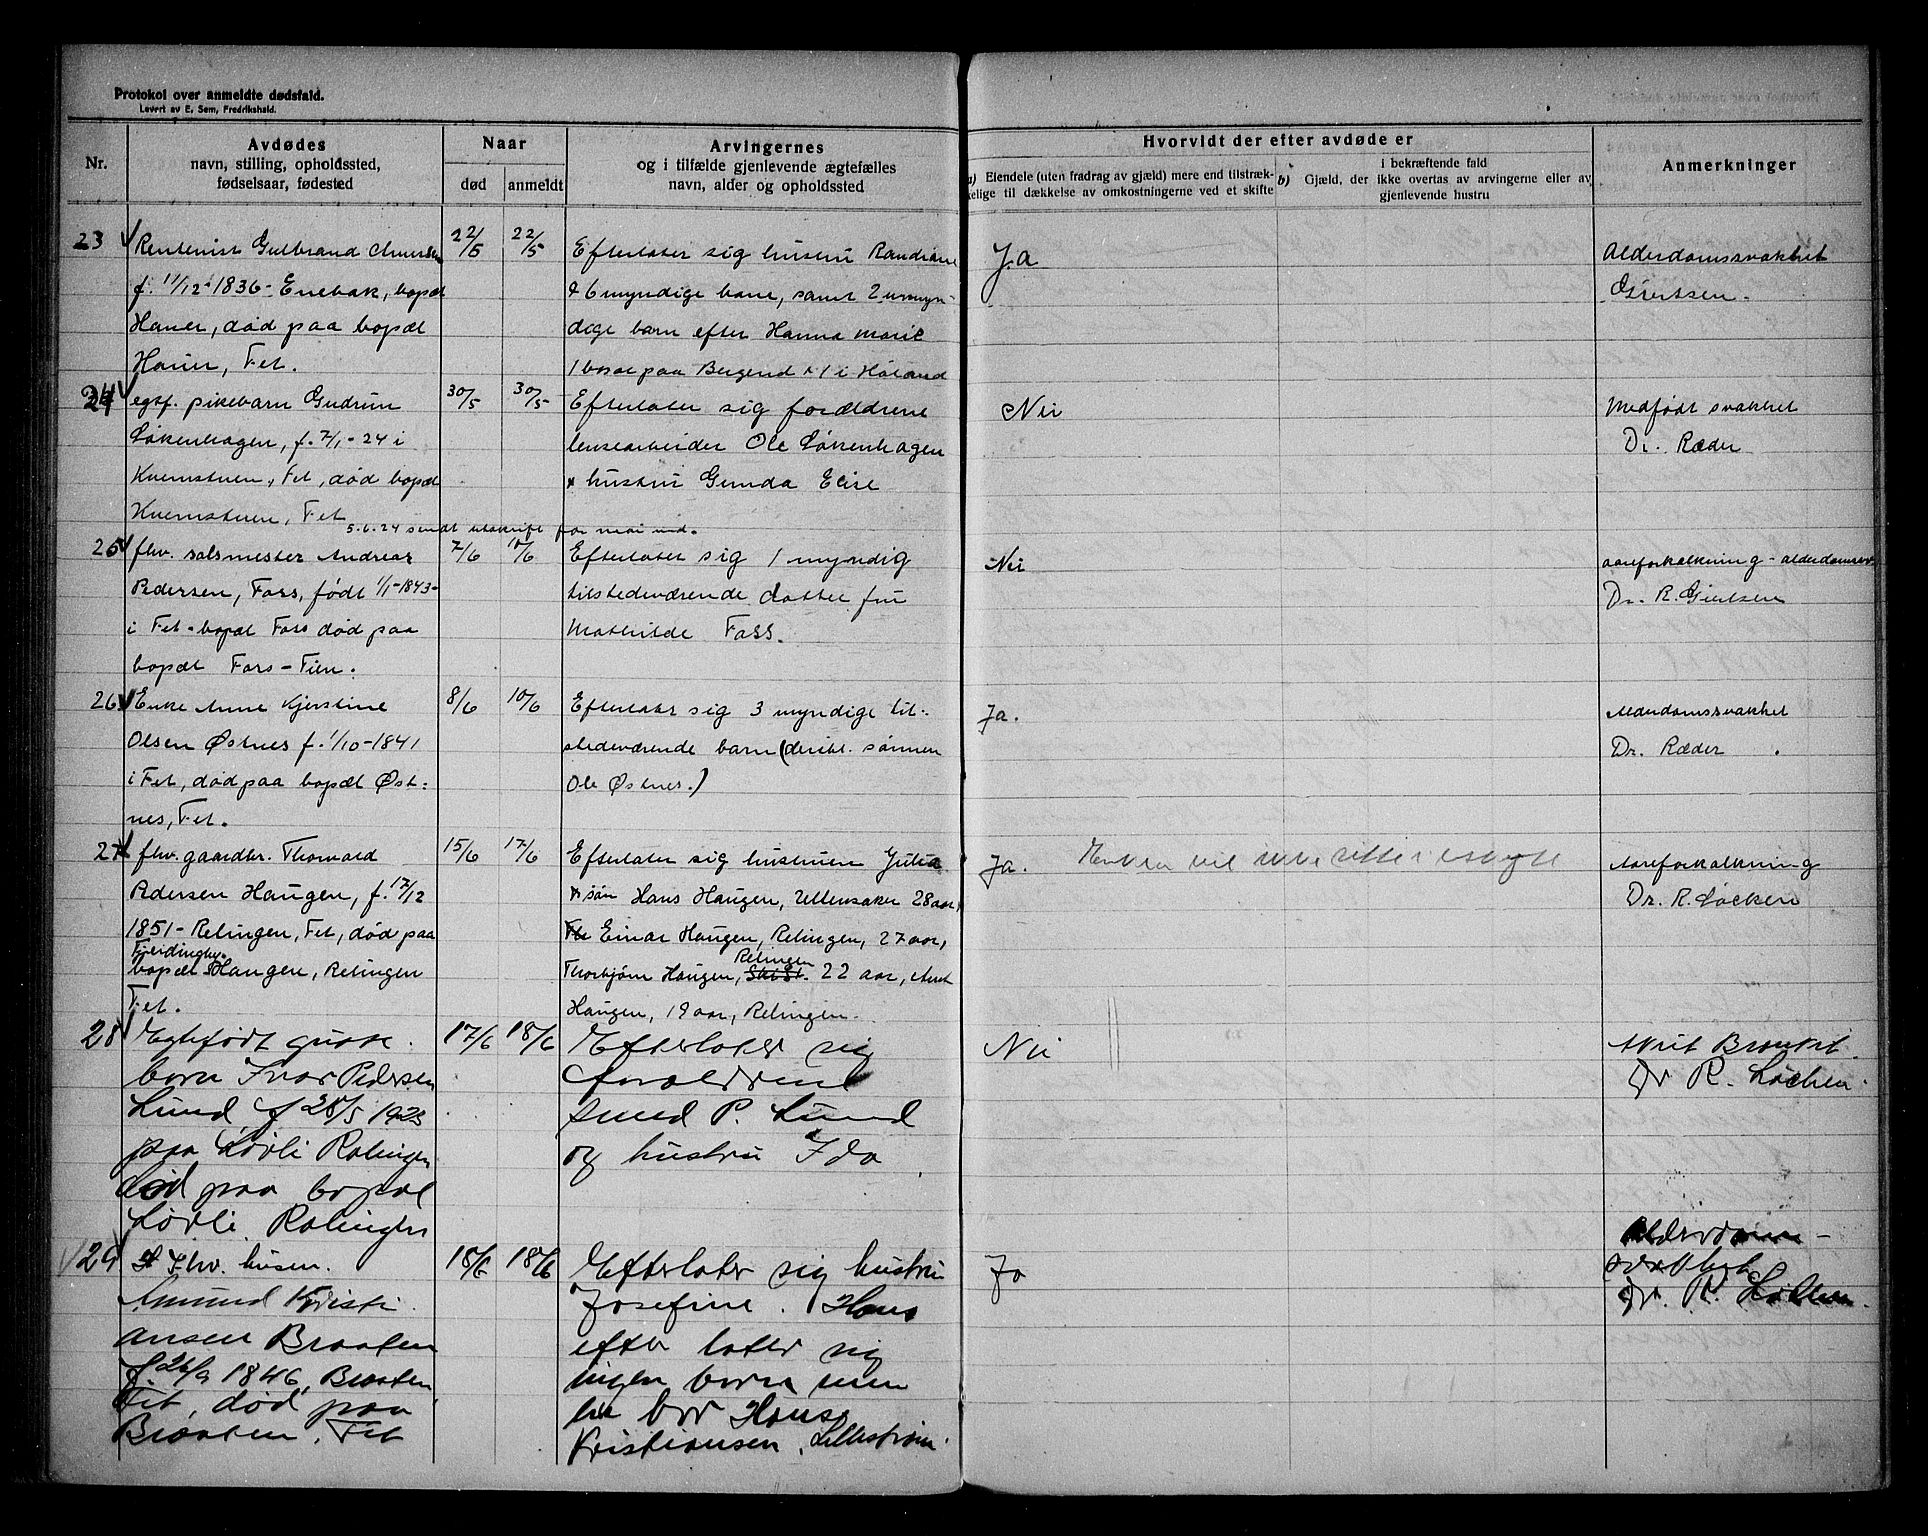 Protokol over anmeldte dødsfald.
Levert av E. Sem, Fredrikshald.
Nr.
Avdødes
navn, stilling, opholdssted,
fødselsaar, fødested
Naar
død
anmeldt
Arvingernes
og i tilfælde gjenlevende ægtefælles
navn, alder og opholdssted
Hvorvidt der efter avdøde er
a) Eiendele (uten fradrag av gjæld) mere end tilstræk-
kelige til dækkelse av omkostningerne ved et skifte
i bekræftende fald
b) Gjæld, der ikke overtas av arvingerne eller av
gjenlevende hustru
Anmerkninger
23
Rentenist Gulbrand
f. 11/12 1836 - Enebak, bopæl
Haner, død paa bopæl
Haner, Fet.
22/5
22/5
Efterlater sig hustru Randiane
& 6 myndige barn, samt 2 umyn-
dige barn efter Hanna Marie
1 bosat paa Bergend & 1 i Høland
Ja
Alderdomssvakhet
Giertsen.
24
egtf. pikebarn Gudrun
Løkenhagen, f. 7/1-24 i
Kvernstuen, Fet, død bopæl
Kvernstuen, Fet
30/5
30/5
Efterlater sig forældrene
lensearbeider Ole Løkenhagen
& hustru Gunda Elise
Nei
Medfødt svakhet
Dr. Ræder
5.6.24 sendt utskrift for mai md.
25
fhv. salsmester Andreas
Pedersen, Fors, født 1/1-1843-
i Fet - bopæl Fors død paa
bopæl Fors - Fet.
7/6
10/6
Efterlater sig 1 myndig
tilstedeværende datter fru
Mathilde Foss.
Nei
aareforkalkning - alderdomssv
Dr. R. Giertsen
26
Enke Anne Kjerstine
Olsen Østnes f. 1/10-1841
i Fet, død paa bopæl Øst-
nes, Fet.
8/6
10/6
Efterlater sig 3 myndige til-
stedeværende barn (deribl. sønnen
Ole Østnes.)
Ja.
Alderdomssvakhet
Dr. Ræder
27
fhv. gaardbr. Thorvald
Pedersen Haugen, f. 17/12
1851 - Relingen, Fet, død paa
Fjerdingby
bopæl Haugen, Relingen
Fet.
15/6
17/6
Efterlater sig hustruen Julia
& søn Hans Haugen, Ullensaker 28 aar,
Einar Haugen, Relingen, 27 aar,
Relingen
Thorbjørn Haugen, 22 aar, Arnt
Haugen, 19 aar, Relingen.
Ja.
Enken vil ikke sitte i uskifte
Aareforkalkning
Dr. R. Løchen
28
Egtefødt gutte
barn Ivar Pedersen
Lund f 28/5 1923
paa Løvli Ralingen
død paa bopæl
Løvli. Ralingen
17/6
18/6
Efterlater sig
foreldrene
smed P. Lund
og hustru Ida
Nei
Akut Bronkit.
Dr R. Løchen.
29
Fhv. husm.
Amund Kristi
ansen Braaten
f 26/9 1846, Braaten
Fet, død paa
Braaten, Fet
18/6
18/6
Efterlater sig hustru
Josefine. Hans
efter later sig
ingen barn men
bor Hans
Kristiansen, Lillestrøm.
Ja
Alderdom-
svakhet
Dr. R. Løchen.